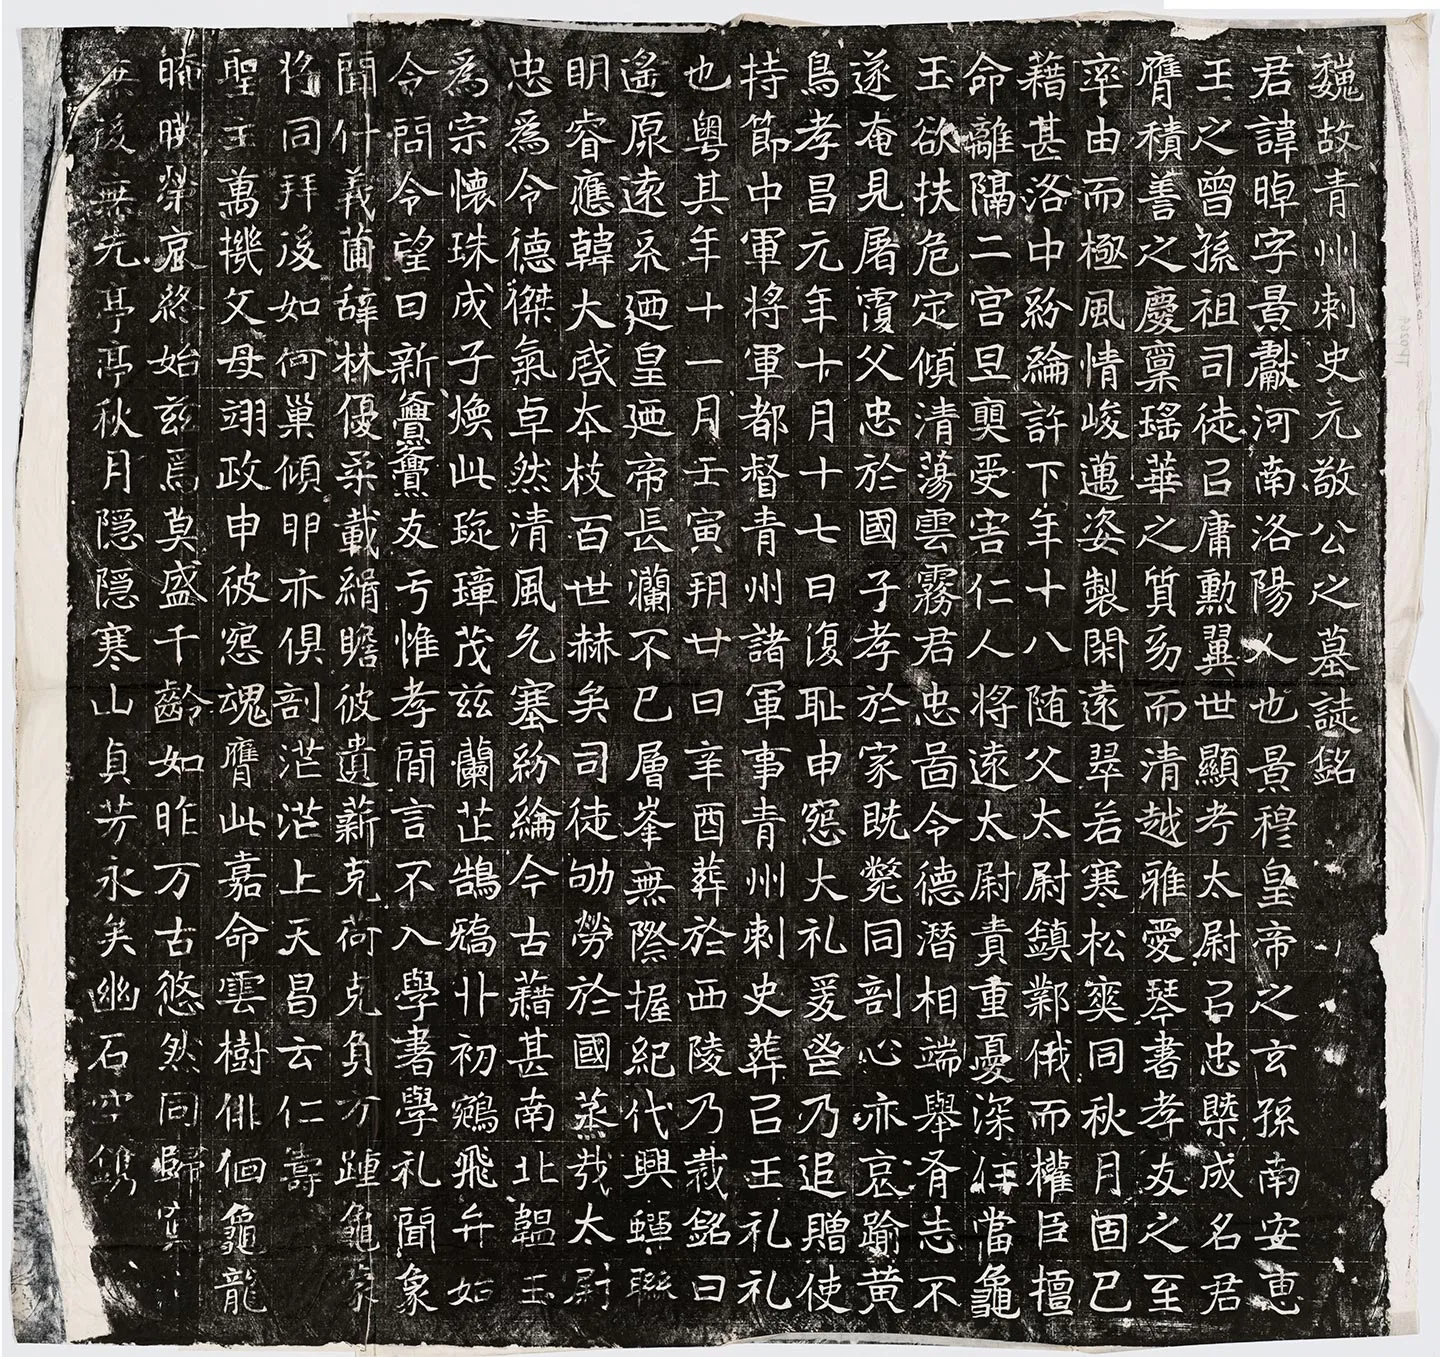 魏故青州刺史元敬公之墓誌銘
君諱暐字景獻河南洛陽人也景穆皇帝之玄孫南安惠
王之曾孫祖司徒召庸勳翼世顯考太尉召忠槩成名君
膺積善之慶稟瑤華之質㓜而清越雅愛琴書孝友之至
率由而極風情峻邁姿製閑遠翠若寒松奕同秋月固已
藉甚洛中紛綸許下年十八隨父太尉鎮鄴俄而權臣擅
命離隔二宮旦奭受害仁人將遠太尉責重憂深任當龜
玉欲扶危定傾清蕩雲霧君忠啚令德潛相端舉脊志不
遂奄見屠覆父忠於國子孝於家既斃同剖心亦哀踰黃
鳥孝昌元年十月十七日復恥申寃大礼爰㫺乃追贈使
持節中軍將軍都督青州諸軍事青州刺史葬召王礼礼
也粵其年十一月壬寅朔廿日辛酉葬於西陵乃裁銘曰
遙原遠系迺皇迺帝長瀾不已層峯無際握紀代興蟬聯
明睿應韓大啓本枝百世赫矣司徒劬勞於國蒸哉太尉
忠為令德傑氣卓然清風允塞紛綸今古藉甚南北韞玉
為宗懷珠成子煥此琁璋茂茲蘭芷鵠㺐卝初鵷飛弁始
令問令望日新爨爨友亏惟孝閒言不入學書學礼聞象
聞什義莆辞林優柔載緝瞻彼遺薪克荷克負万踵龜象
將同拜後如何巢傾卵亦俱剖茫茫上天昌云仁壽
聖主萬機父母翊政申彼寃魂膺此嘉命雲樹俳佪龜龍
晻曖榮哀終始茲焉莫盛千齡如昨万古悠然同歸
無後無先亭亭秋月隱隱寒山貞芳永矣幽石空鐫